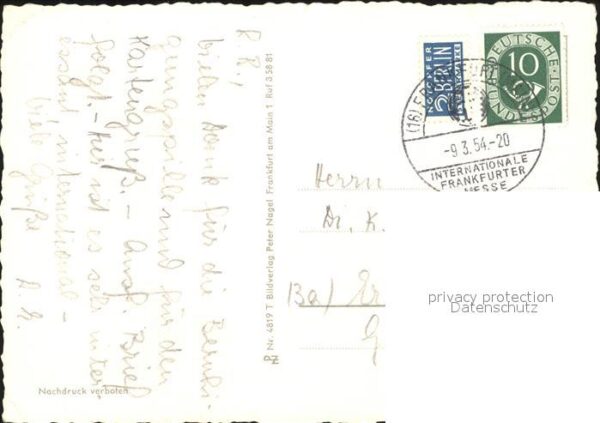 L. K.!
vielen Dank für die Beruhi-
gungspille und für den
Kartengruß. – Ausf. Brief
folgt. – Hier ist es sehr inter-
essant international –
viele Grüße
Nachdruck verboten
Nr. 4819 T Bildverlag Peter Nagel Frankfurt am Main 1 Ruf 35881
NOTOPFER
2 BERLIN
STEUERMARKE
DEUTSCHE
10
BUNDESPOST
(16) FRANKFURT
-9.3.54.-20
INTERNATIONALE
FRANKFURTER
MESSE
Herrn
Dr. K.
privacy protection
Datenschutz